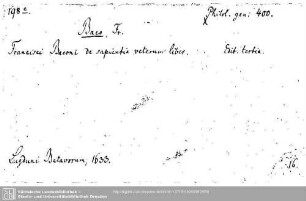 Philol. gen: 400.
Baco Fr.
Francisci Baconi de sapientia veterum liber. Edit. tertia.
Lugduni Batavorum, 1633.
16.
Sächsische Landesbibliothek -
Staats- und Universitätsbibliothek Dresden